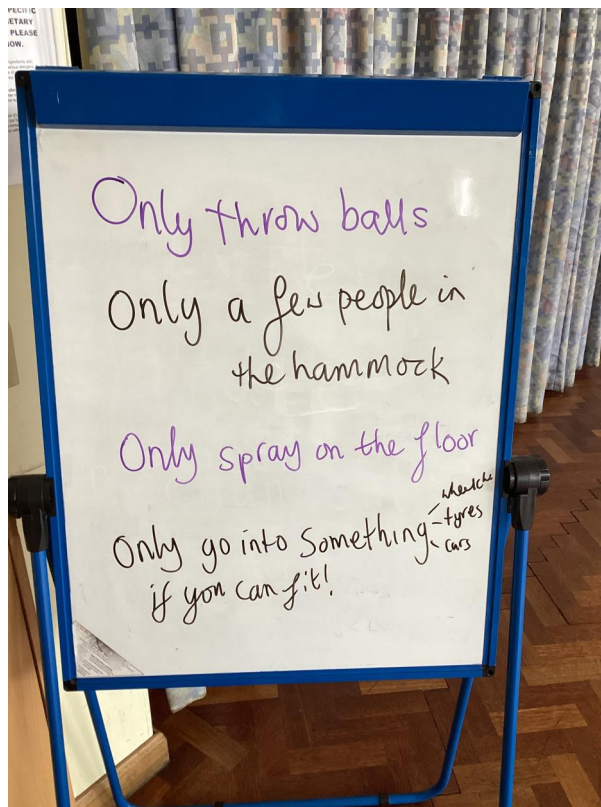 PECIFIC
ETARY
PLEASE
OW.
Only throw balls
Only a few people in
the hammock
Only spray on the floor
Only go into something
tyres
cars
if you can fit!